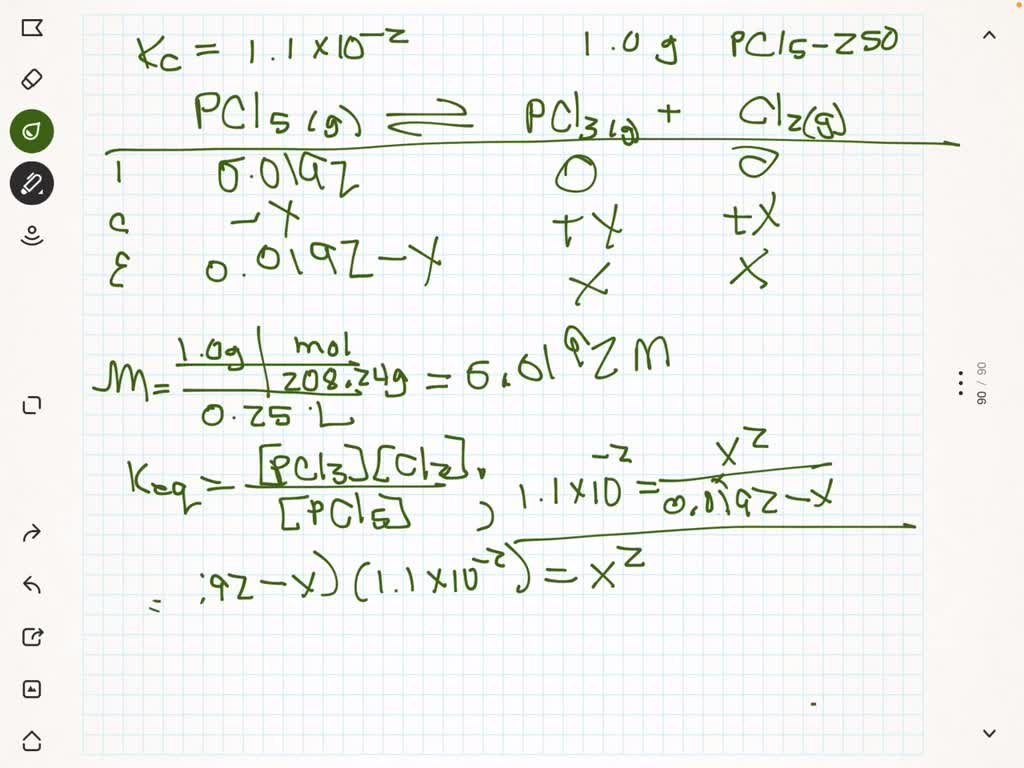 Kc = 1.1 × 10⁻² 1.0 g PCl5-250
PCl5(g) ⇌ PCl3(g) + Cl2(g)
I 0.0192 0 0
C -X +X +X
E 0.0192-X X X
M = 1.0g | mol / 208.24g / 0.25 L = 0.0192 M
Keq = [PCl3][Cl2] / [PCl5] , 1.1×10⁻² = X² / 0.0192-X
= 92-X)(1.1×10⁻²) = X²
90 / 90